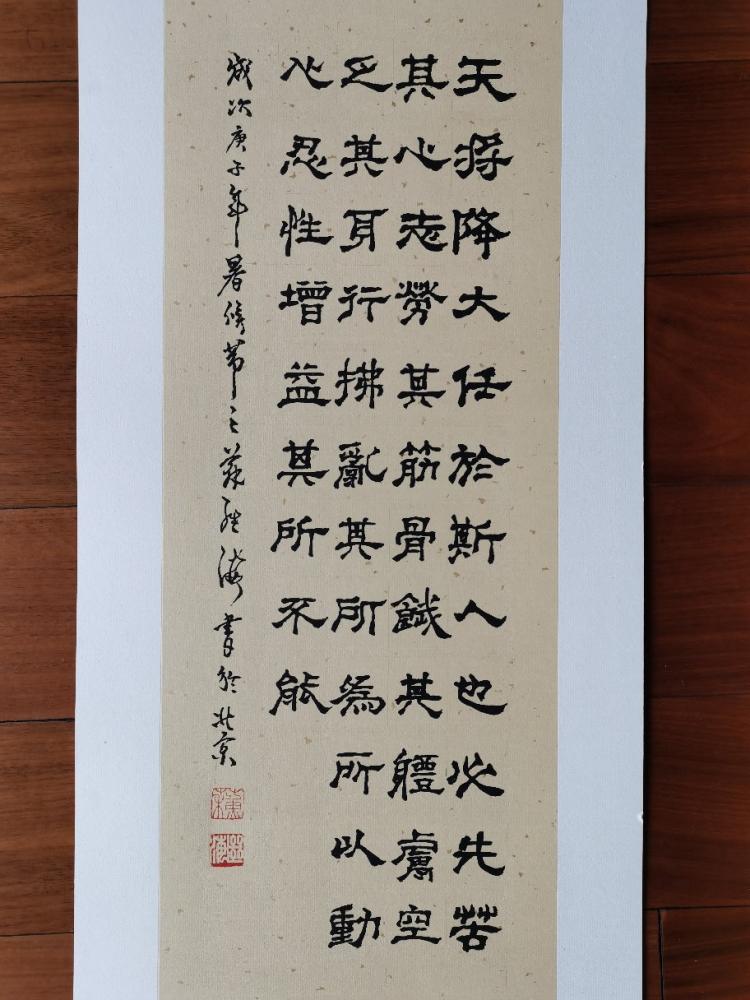 天将降大任於斯人也必先苦
其心志勞其筋骨餓其體膚空
乏其身行拂亂其所為所以動
心忍性增益其所不能
歲次庚子年暑節之海書於北京